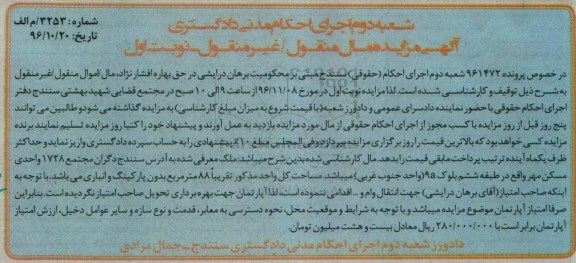 شماره: ۳۲۵۳/م الف
تاریخ: ۹۶/۱۰/۲۰
شعبه دوم اجرای احکام مدنی دادگستری
آگهی مزایده مال منقول/غیر منقول-نوبت اول
در خصوص پرونده ۹۶۱۴۷۲ شعبه دوم اجرای احکام (حقوقی) سنندج مبنی بر محکومیت برهان درایشی در حق بهاره افشار نژاد، مال /اموال منقول/غیر منقول
به شرح ذیل توقیف و کارشناسی شده است. لذا مزایده نوبت اول در مورخ ۹۶/۱۱/۰۸ از ساعت ۹ الی ۱۰ صبح در مجتمع قضایی شهید بهشتی سنندج دفتر
اجرای احکام حقوقی با حضور نماینده دادسرای عمومی و دادورز شعبه (با قیمت شروع به میزان مبلغ کارشناسی) به مزایده گذاشته می شود و طالبین می توانند
پنج روز قبل از روز مزایده با کسب مجوز از اجرای احکام حقوقی از مال مورد مزایده بازدید به عمل آورند و پیشنهاد خود را کتبا روز مزایده تسلیم نمایند برنده
مزایده کسی خواهد بود که بالاترین قیمت را روز برگزاری مزایده بپردازد و فی المجلس مبلغ ۱۰٪ پیشنهادی را به حساب سپرده دادگستری واریز نماید و حداکثر
ظرف یکماه آینده ترتیب پرداخت مابقی قیمت را بدهد. مال کارشناسی شده بدین شرح میباشد: ملک معرفی شده به آدرس سنندج دگران مجتمع ۱۷۲۸ واحدی
مسکن مهر واقع در طبقه ششم بلوک ۹۵ (واحد جنوب غربی) میباشد. مساحت کل واحد مذکور تقریباً ۸۸ متر مربع بدون پارکینگ و انباری می باشد. با توجه به
اینکه صاحب امتیاز (آقای برهان درایشی) جهت انتقال وام و... اقدامی ننموده است، لذا آپارتمان جهت بهره برداری تحویل صاحب امتیاز نگردیده است. بنابراین
صرفا امتیاز آپارتمان موضوع مزایده میباشد و با توجه به شرایط و موقعیت محل، نحوه دسترسی به معابر، قدمت و نوع سازه و سایر عوامل دخیل، ارزش امتیاز
آپارتمان برابر است با ۲۸۰/۰۰۰/۰۰۰ ریال معادل بیست و هشت میلیون تومان.
دادورز شعبه دوم اجرای احکام مدنی دادگستری سنندج - جمال مرادی